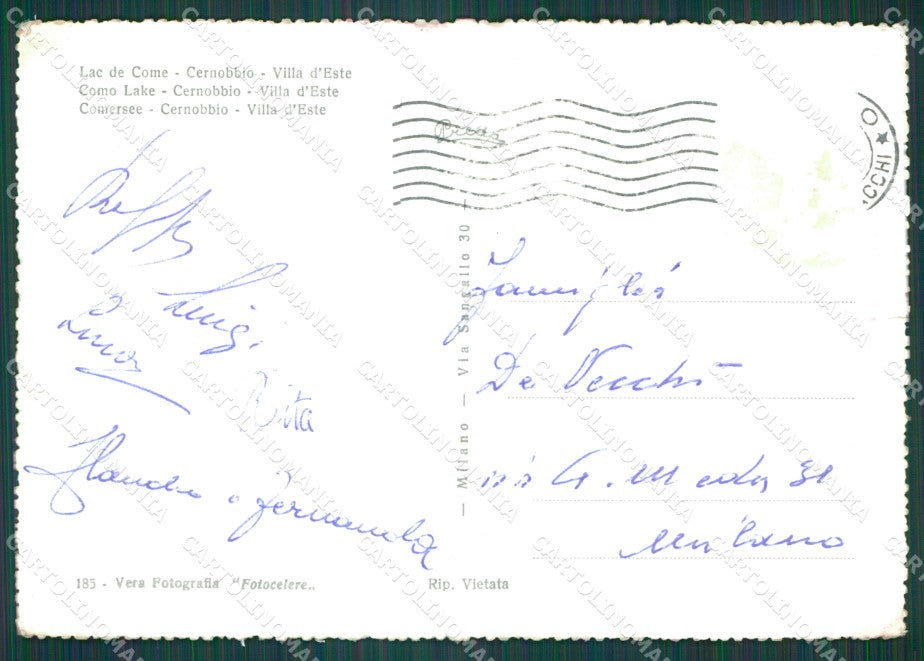 Lac de Come - Cernobbio - Villa d'Este
Como Lake - Cernobbio - Villa d'Este
Comersee - Cernobbio - Villa d'Este
Luigi
Rita
Fernanda
Famiglia
De Vecchi
via G. Meda 31
Milano
— Milano — Via Sangallo 30 —
185 - Vera Fotografia "Fotocelere..
Rip. Vietata
CARTOLINOMANIA